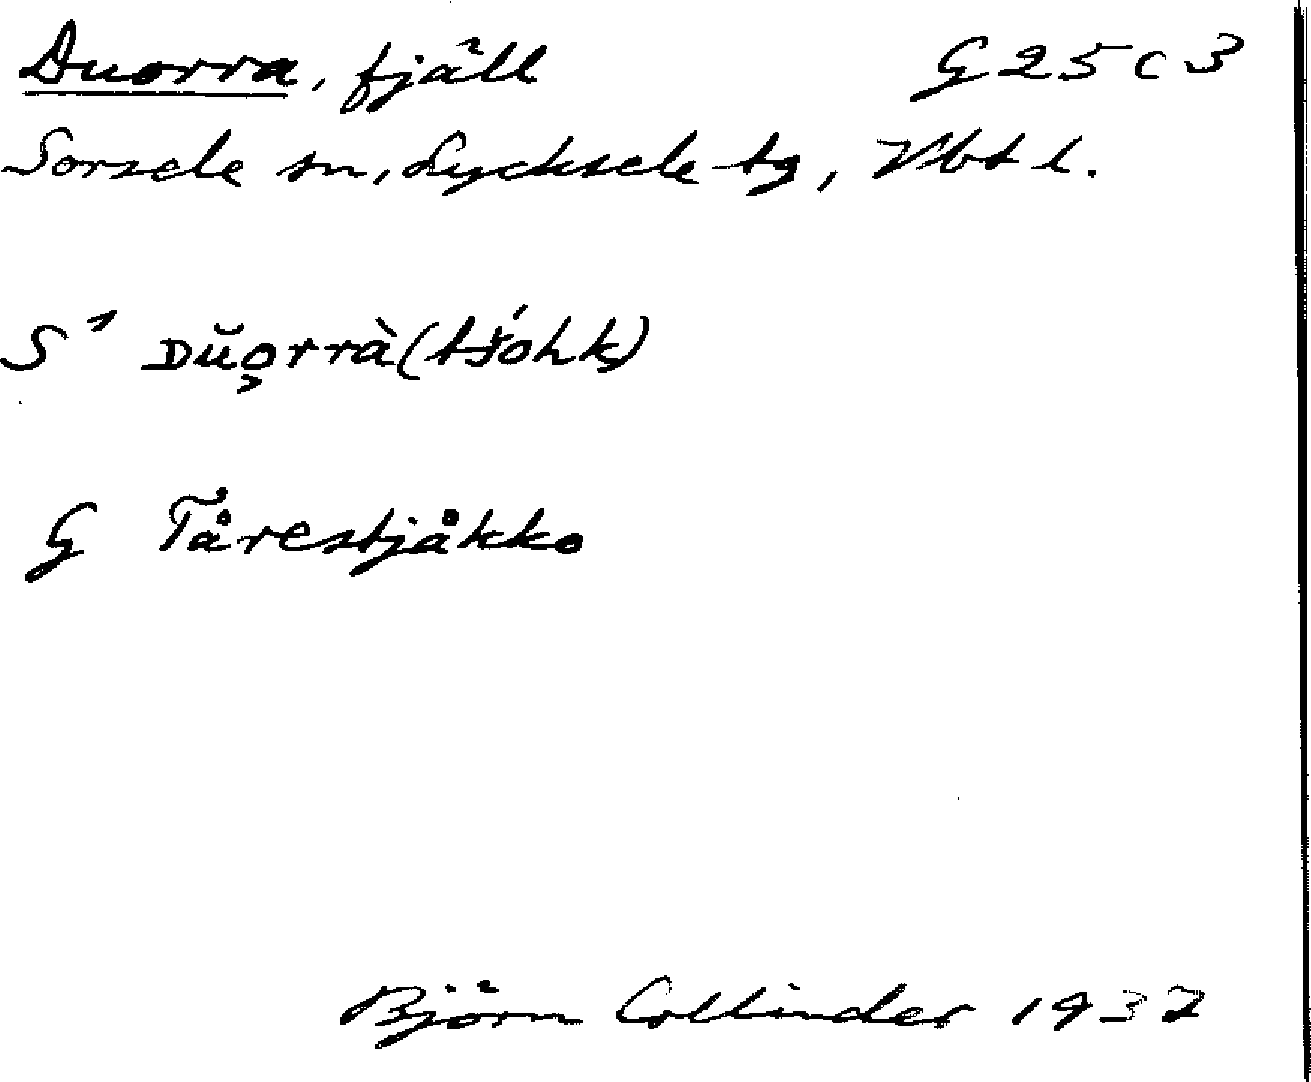 Duorra, fjäll G 25 c 3
Sorsele sn, Lycksele tg, Vbt l.
S¹ Dŭo̧rrà (tśohk)
G Tårestjåkko
Björn Collinder 1937